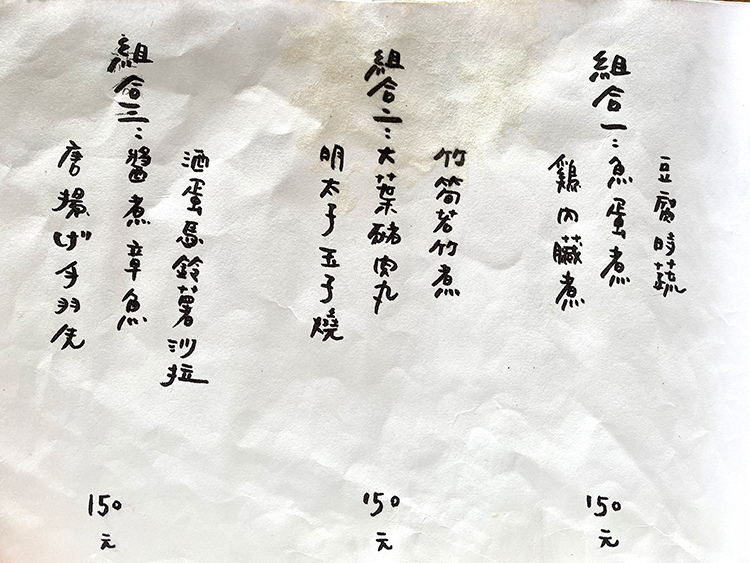 豆腐時蔬
組合一:魚蛋煮
鶏内臓煮
150元
竹筍若竹煮
組合二:大葉豬肉丸
明太子玉子燒
150元
酒蛋馬鈴薯沙拉
組合三:醬煮章魚
唐揚げ手羽先
150元